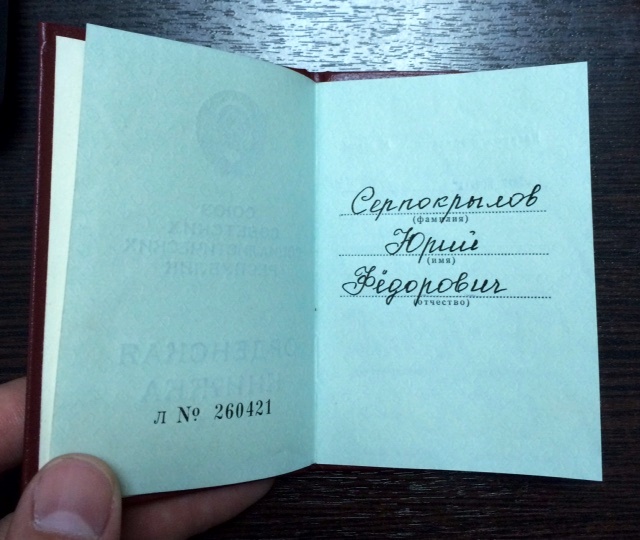 л № 260421
Серпокрылов
(фамилия)
Юрий
(имя)
Фёдорович
(отчество)